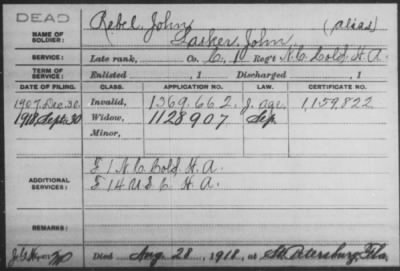 DEAD
NAME OF SOLDIER: Rebel, John
Lasker, John (alias)
SERVICE: Late rank, Co. C, 1 Reg't N.C. Cold. H.A.
TERM OF SERVICE: Enlisted , 1 Discharged , 1
DATE OF FILING. CLASS. APPLICATION NO. LAW. CERTIFICATE NO.
1907, Dec. 30. Invalid, 1369.662 J. age. 1,159,822
1918, Sept. 30 Widow, 1128907 Sep.
Minor,
F 1 N.C. Cold. H.A.
ADDITIONAL SERVICES: F 14 U.S.C. H.A.
REMARKS:
Died Aug. 28, 1918, at St. Petersburg, Fla.